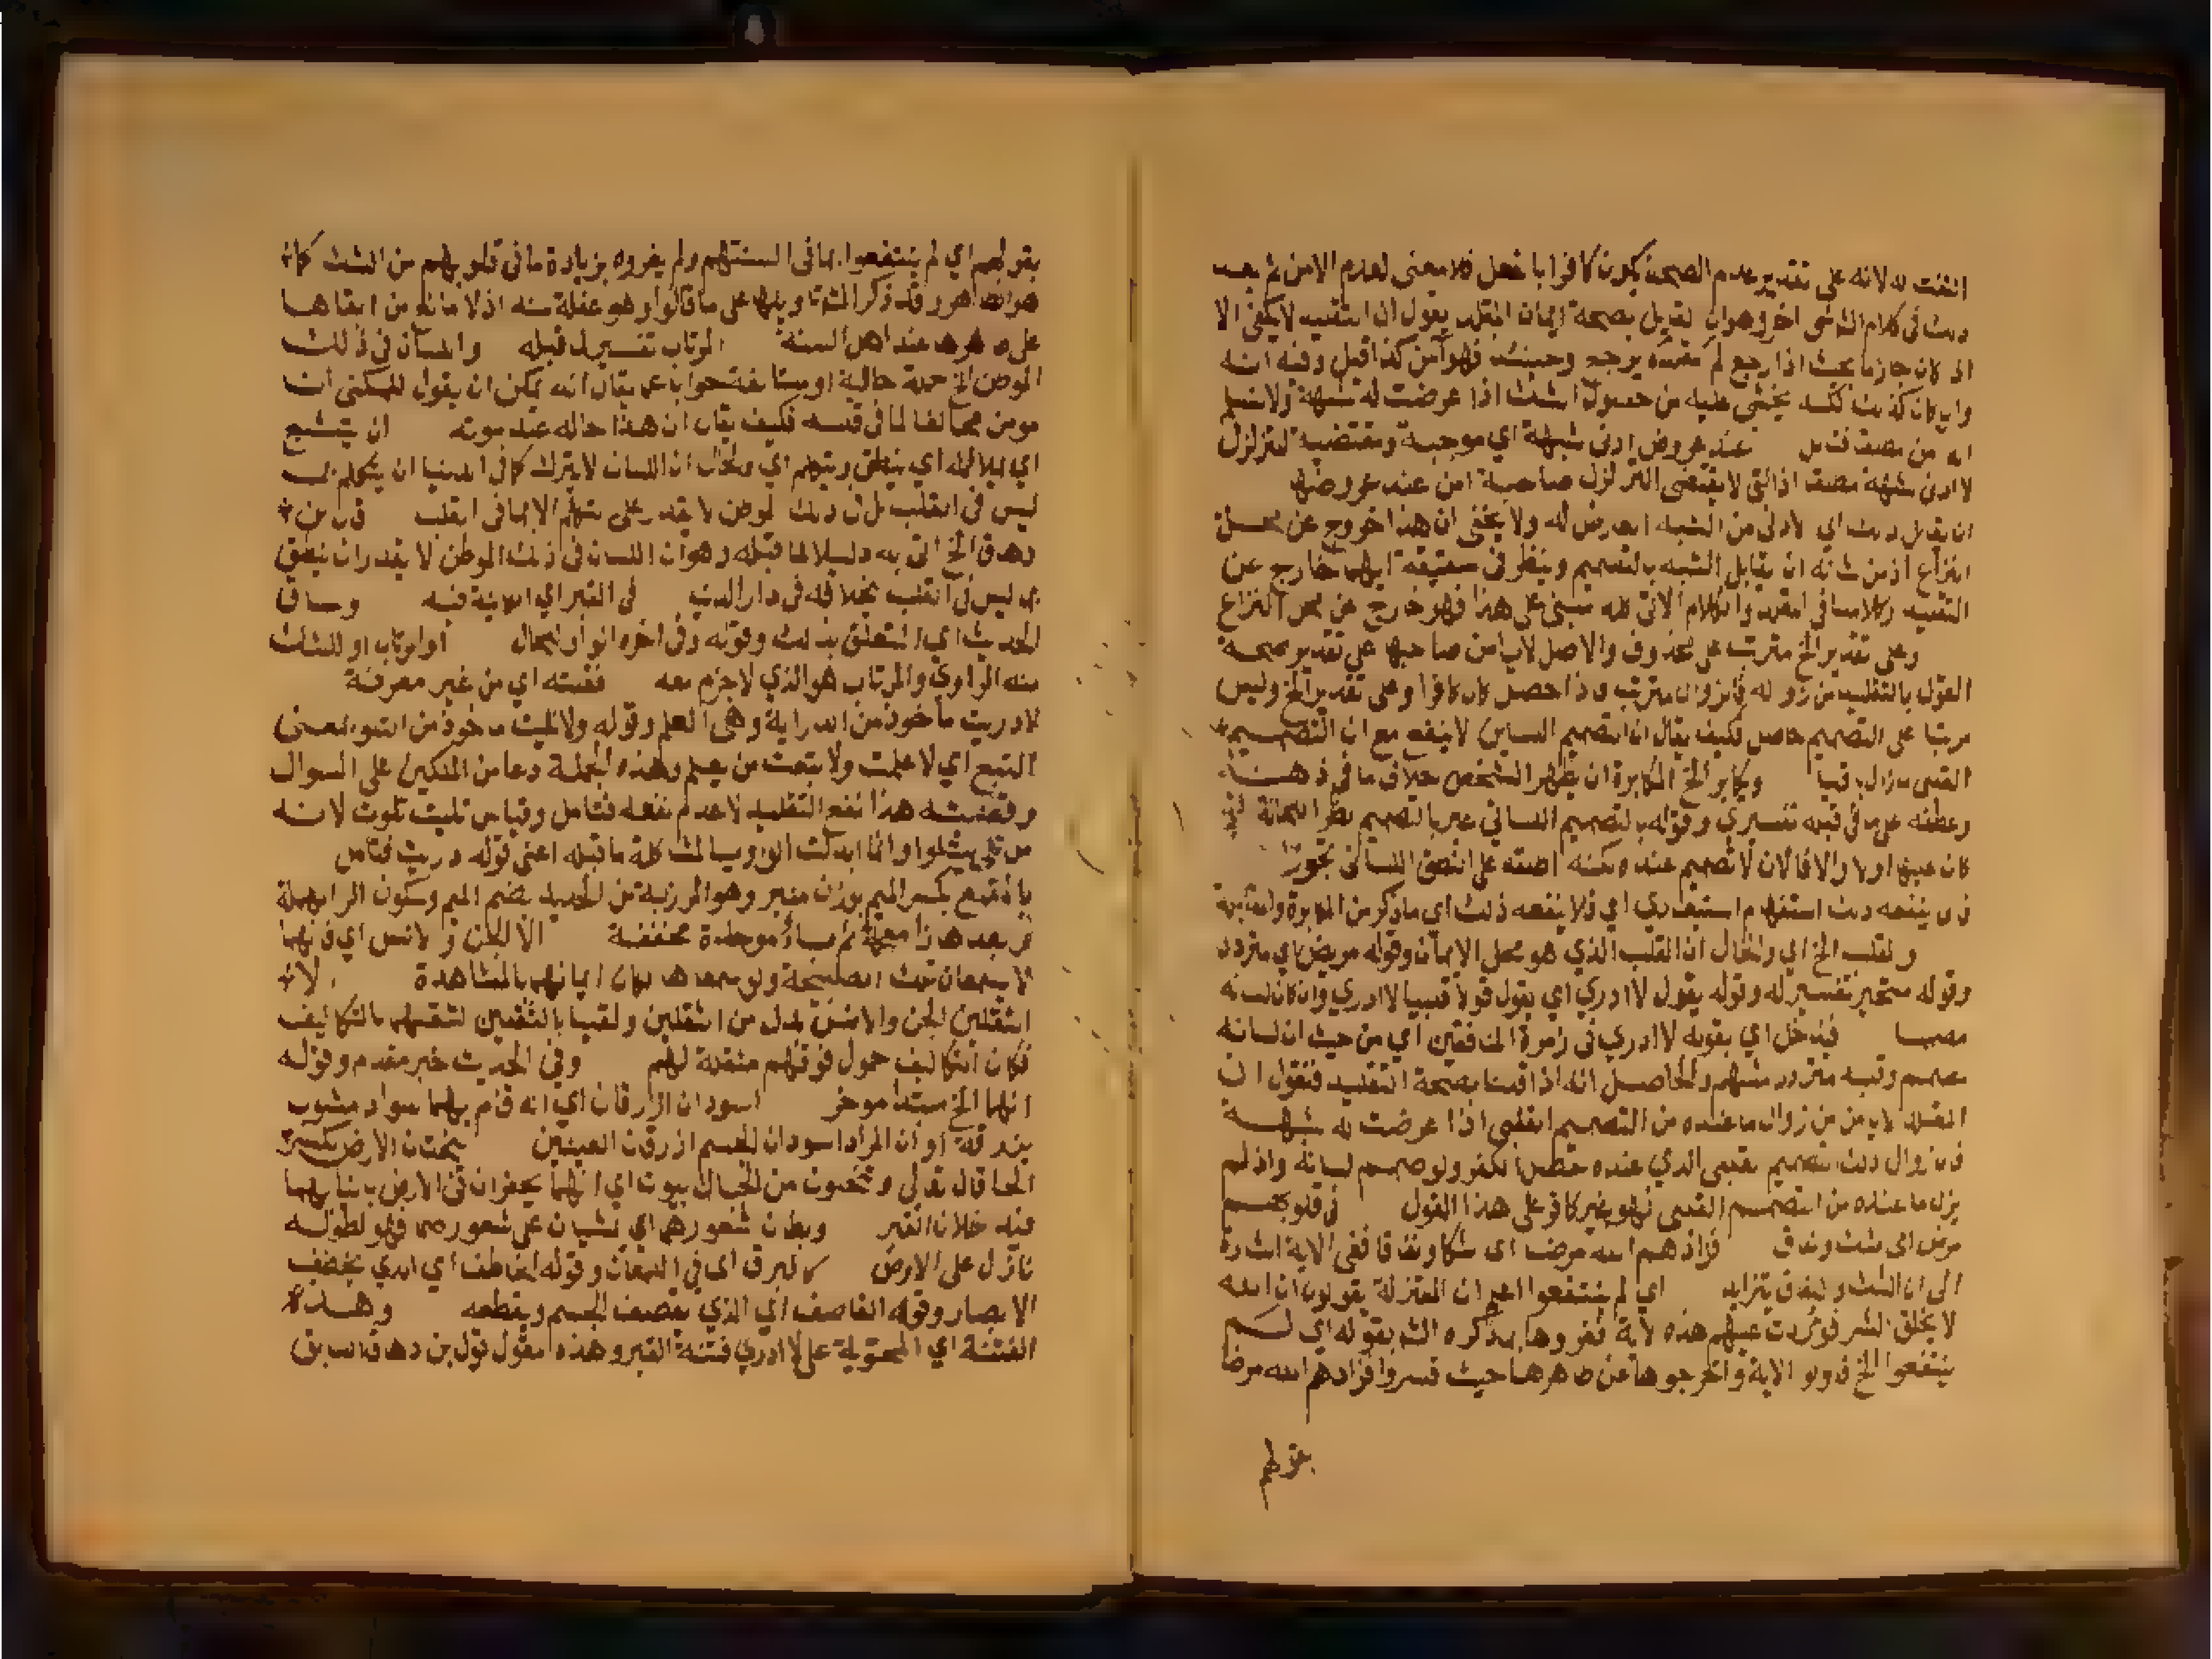 التفت له لانه على تقدير عدم الصحة يكون كافرا بالفعل فلا معنى لعدم الامن ثم بعد
ذلك في كلام الشارح اخر وهو ان القول بصحة ايمان المقلد يقول ان التقليد لا يكفي الا
اذا كان جازما بحيث اذا رجع لم مقلده يرجع وحينئذ فهو آمن كذا قيل وفيه انه
وان كان كذلك لكنه يخشى عليه من حصول الشك اذا عرضت له شبهة ولا نسلم
انه من مصدق عند عروض ادنى شبهة اي موجبة ومقتضية لتزلزل
لا ادنى شبهة مصدق اذ التي لا يقتضى التزلزل صاحبه امن عند عروضها
ان يقابل ذلك اي لادنى من الشبه العارض له ولا يخفى ان هذا خروج عن محل
النزاع اذ من شانه ان يقابل الشبه بالتصميم وينظر في حقيقة ايها خارج عن
التقليد وكلامنا في المقلد والكلام الاتي كله مبني على هذا فهو خارج عن محل النزاع
وعلى تقدير الخ مترتب على محذوف والاصل لا يامن صاحبها على تقدير صحة
القول بالتقليد من زواله فالزوال مترتب واذا حصل كان كافرا وعلى تقدير الخ وليس
مرتبا على التصميم حاصل فكيف يقال ان التصميم اللساني لا ينفع مع ان التصميم
القلبي مازال باقيا ويكابر الخ المكابرة ان يظهر الشخص خلاف ما في ذهنه
وعطفه على ما في قبله تفسيري وقوله بالتصميم اللساني عبر بالتصميم نظرا للحالة التي
كان عليها اولا والا فالان لا تصميم عنده ولكنه اطلقه على النطق اللساني تجوزا
فان ينفعه ذلك استفهام استبعادي اي فلا ينفعه ذلك اي ما ذكر من المكابرة والمقابلة
والقلب الخ اي والحال ان القلب الذي هو محل الايمان وقوله مريض اي متردد
وقوله متحير تفسير له وقوله يقول لا ادري اي يقول قولا قلبيا لا ادري وان كان لسانه
مصمما فيدخل اي بقوله لا ادري في زمرة المنافقين اي من حيث ان لسانه
مصمم وقلبه متردد مثلهم والحاصل انه اذا قلنا بصحة التقليد فنقول ان
المقلد لا يامن من زوال ما عنده من التصميم القلبي اذا عرضت له شبهة
فان زوال ذلك التصميم القلبي الذي عنده حصل الكفر ولو صمم لسانه واذا لم
يزل ما عنده من التصميم القلبي فهو غير كافر على هذا القول في قلوبهم
مرض اي شك ونفاق فزادهم الله مرضا اي شكا ونفاقا ففي الاية اشارة
الى ان الشك والنفاق يتزايد اي لم ينتفعوا اعلم ان المعتزلة يقولون ان الله
لا يخلق الشر فوردت عليهم هذه الاية ففروها بما ذكره الش بقوله اي لم
ينتفعوا الخ فاولوا الاية واخرجوها عن ظاهرها حيث فسروا فزادهم الله مرضا
بقولهم
بقولهم اي لم ينتفعوا بما في السنتهم ولم يضروه بزيادة ما في قلوبهم من الشك كما
هو الظاهر وقد ذكر الش تاويلها على ما قالوا وهو غفلة منه اذ لا مانع من ابقاها
على ظاهرها عند اهل السنة المرتاب تفسير لما قبله والمسان في ذلك
الموطن الخ جملة حالية او مستانفة جوابا عما يقال انه يمكن ان يقول للملكين انا
مومن مخالفا لما في قلبه فكيف يقال ان هذا حاله عند موته ان يتلجلج
اي ينطق ويتكلم اي والحال ان اللسان لا يترك كما في الدنيا ان يتكلم بما
ليس في القلب بل في ذلك الموطن لا يقدر على تكلم الا بما في القلب قال ابن
دهاق الخ اتى به دليلا لما قبله وهو ان اللسان في ذلك الموطن لا يقدر ان ينطق
بما ليس في القلب بخلافه في دار الدنيا في القبر اي الاوية فيه وساق
الحديث اي المتعلق بذلك وقوله وفي اخره الواو للحال او المرتاب او للشك
منه الراوي والمرتاب هو الذي لا جزم معه فقلته اي من غير معرفة
لا دريت ماخوذ من الدراية وهي العلم وقوله ولا تليت ماخوذ من التلو بمعنى
التبع اي لا علمت ولا تبعت من يعلم وهذه الجملة دعا من الملكين على المسئول
وقضيته هذا نفع التقليد لا عدم نفعه فتامل وقياس تليت تلوت لانه
من تلى يتلوا وانما ابدلت الواو يا لمشاكلة ما قبله اعني قوله دريت فتامل
بالمقمع بكسر الميم بوزن منبر وهو المرزبة من الحديد بضم الميم وسكون الرا المهملة
بعدها زا معجمة ثم باء موحدة مخففة الا الجن والانس اي فانهما
لا يسمعان تلك الصيحة ولو سمعاها لكان ايمانهما بالمشاهدة لان
الثقلين الجن والانس بدل من الثقلين ولقبا بالثقلين لثقلهما بالتكاليف
فكان التكاليف حمول فوقهم مثقلة لهم وفي الحديث خبر مقدم وقوله
انهما الخ مبتدا موخر اسودان ازرقان اي انه قام بهما سواد مشوب
بزرقة او ان المراد اسودان الجسم ازرقان العينين يختان الارض بكسر
الخا قال تعالى وتنحتون من الجبال بيوتا اي انهما يحفران في الارض بانيابهما
فيه خلال القبر ويطان شعورهما اي يمشيان على شعورهما فهو لطوله
نازل على الارض كالبرق اي في اللمعان وقوله الخاطف اي الذي يخطف
الابصار وقوله القاصف اي الذي يقصف الجسم ويقطعه وهذه
الفتنة اي المحتوية على لا ادري فتنة القبر وهذه مقول قول ابن دهاق السابق